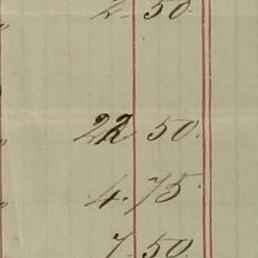 2 50.
22 50.
4.75.
7.50